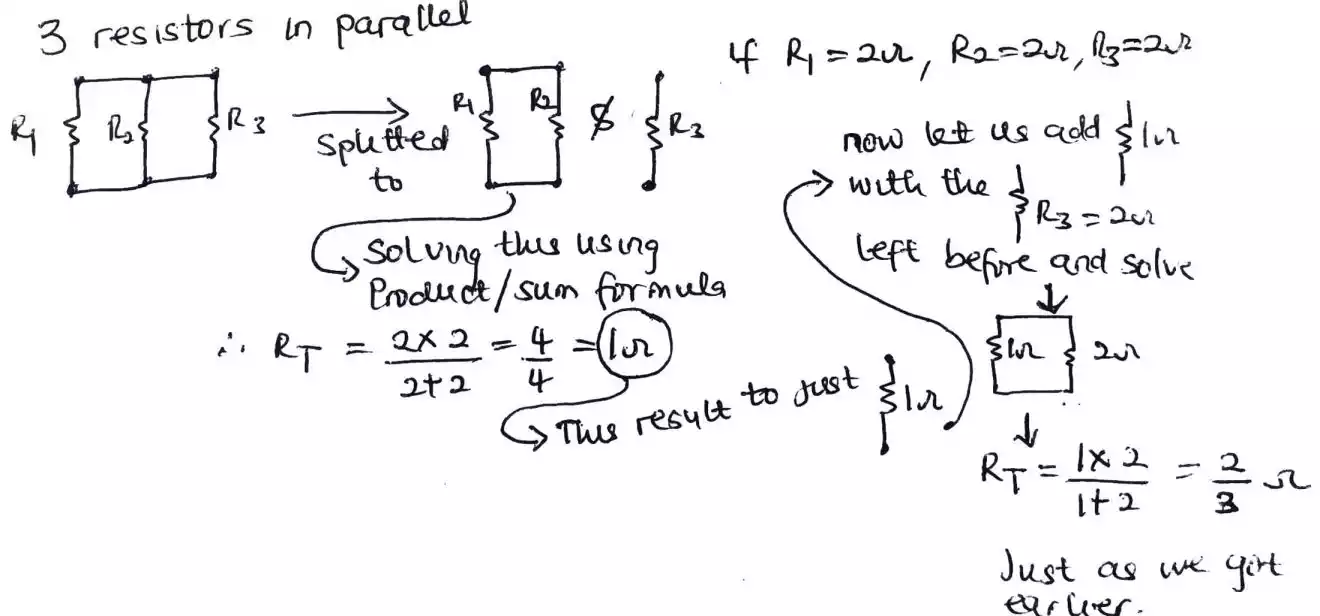 3 resistors in parallel
R1 R2 R3
splitted
to
R1 R2 & R3
Solving this using
Product/sum formula
∴ RT = 2×2/2+2 = 4/4 = 1Ω
This result to just 1Ω
If R1 = 2Ω, R2 = 2Ω, R3 = 2Ω
now let us add 1Ω
with the R3 = 2Ω
left before and solve
1Ω 2Ω
RT = 1×2/1+2 = 2/3 Ω
Just as we got
earlier.